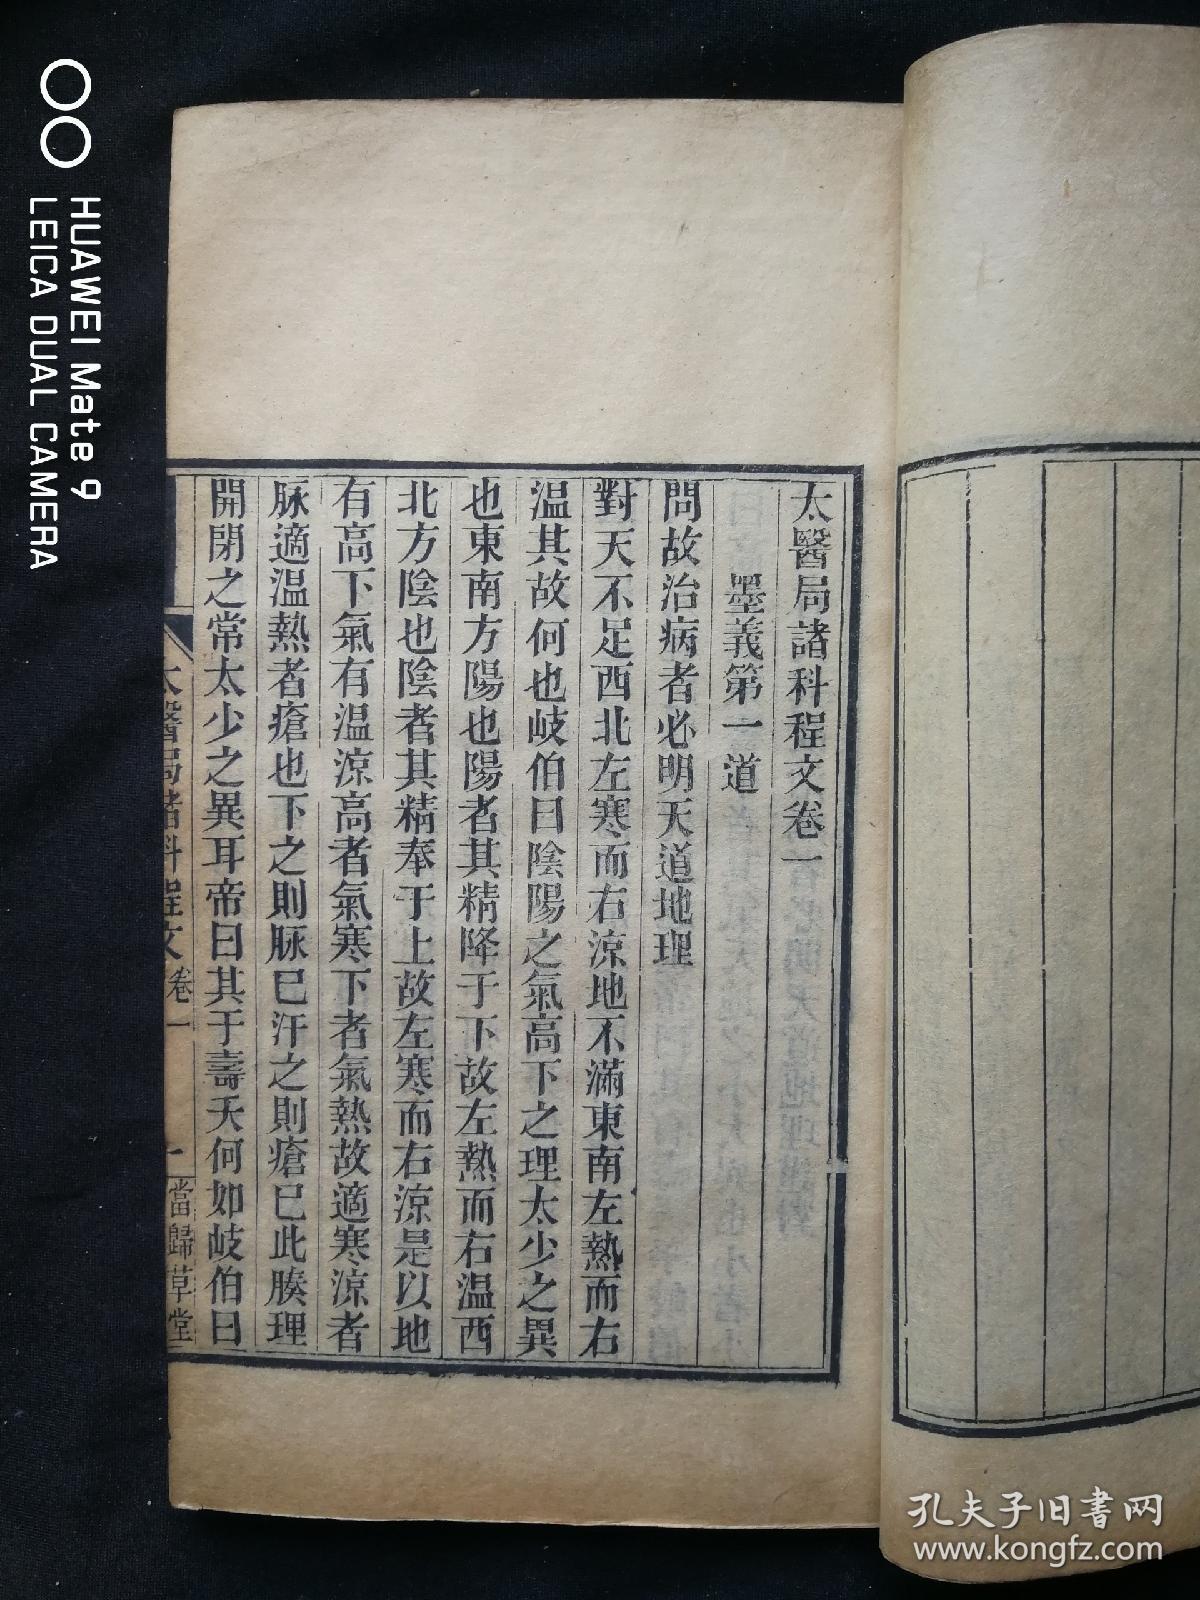 太醫局諸科程文卷一
墨義第一道
問故治病者必明天道地理
對天不足西北左寒而右涼地不滿東南左熱而右
温其故何也岐伯曰陰陽之氣高下之理太少之異
也東南方陽也陽者其精降于下故左熱而右温西
北方陰也陰者其精奉于上故左寒而右涼是以地
有高下氣有温涼高者氣寒下者氣熱故適寒涼者
脹適温熱者瘡也下之則脹已汗之則瘡已此腠理
開閉之常太少之異耳帝曰其于壽夭何如岐伯曰
太醫局諸科程文 卷一 一 當歸草堂
HUAWEI Mate 9
LEICA DUAL CAMERA
孔夫子旧书网
www.kongfz.com